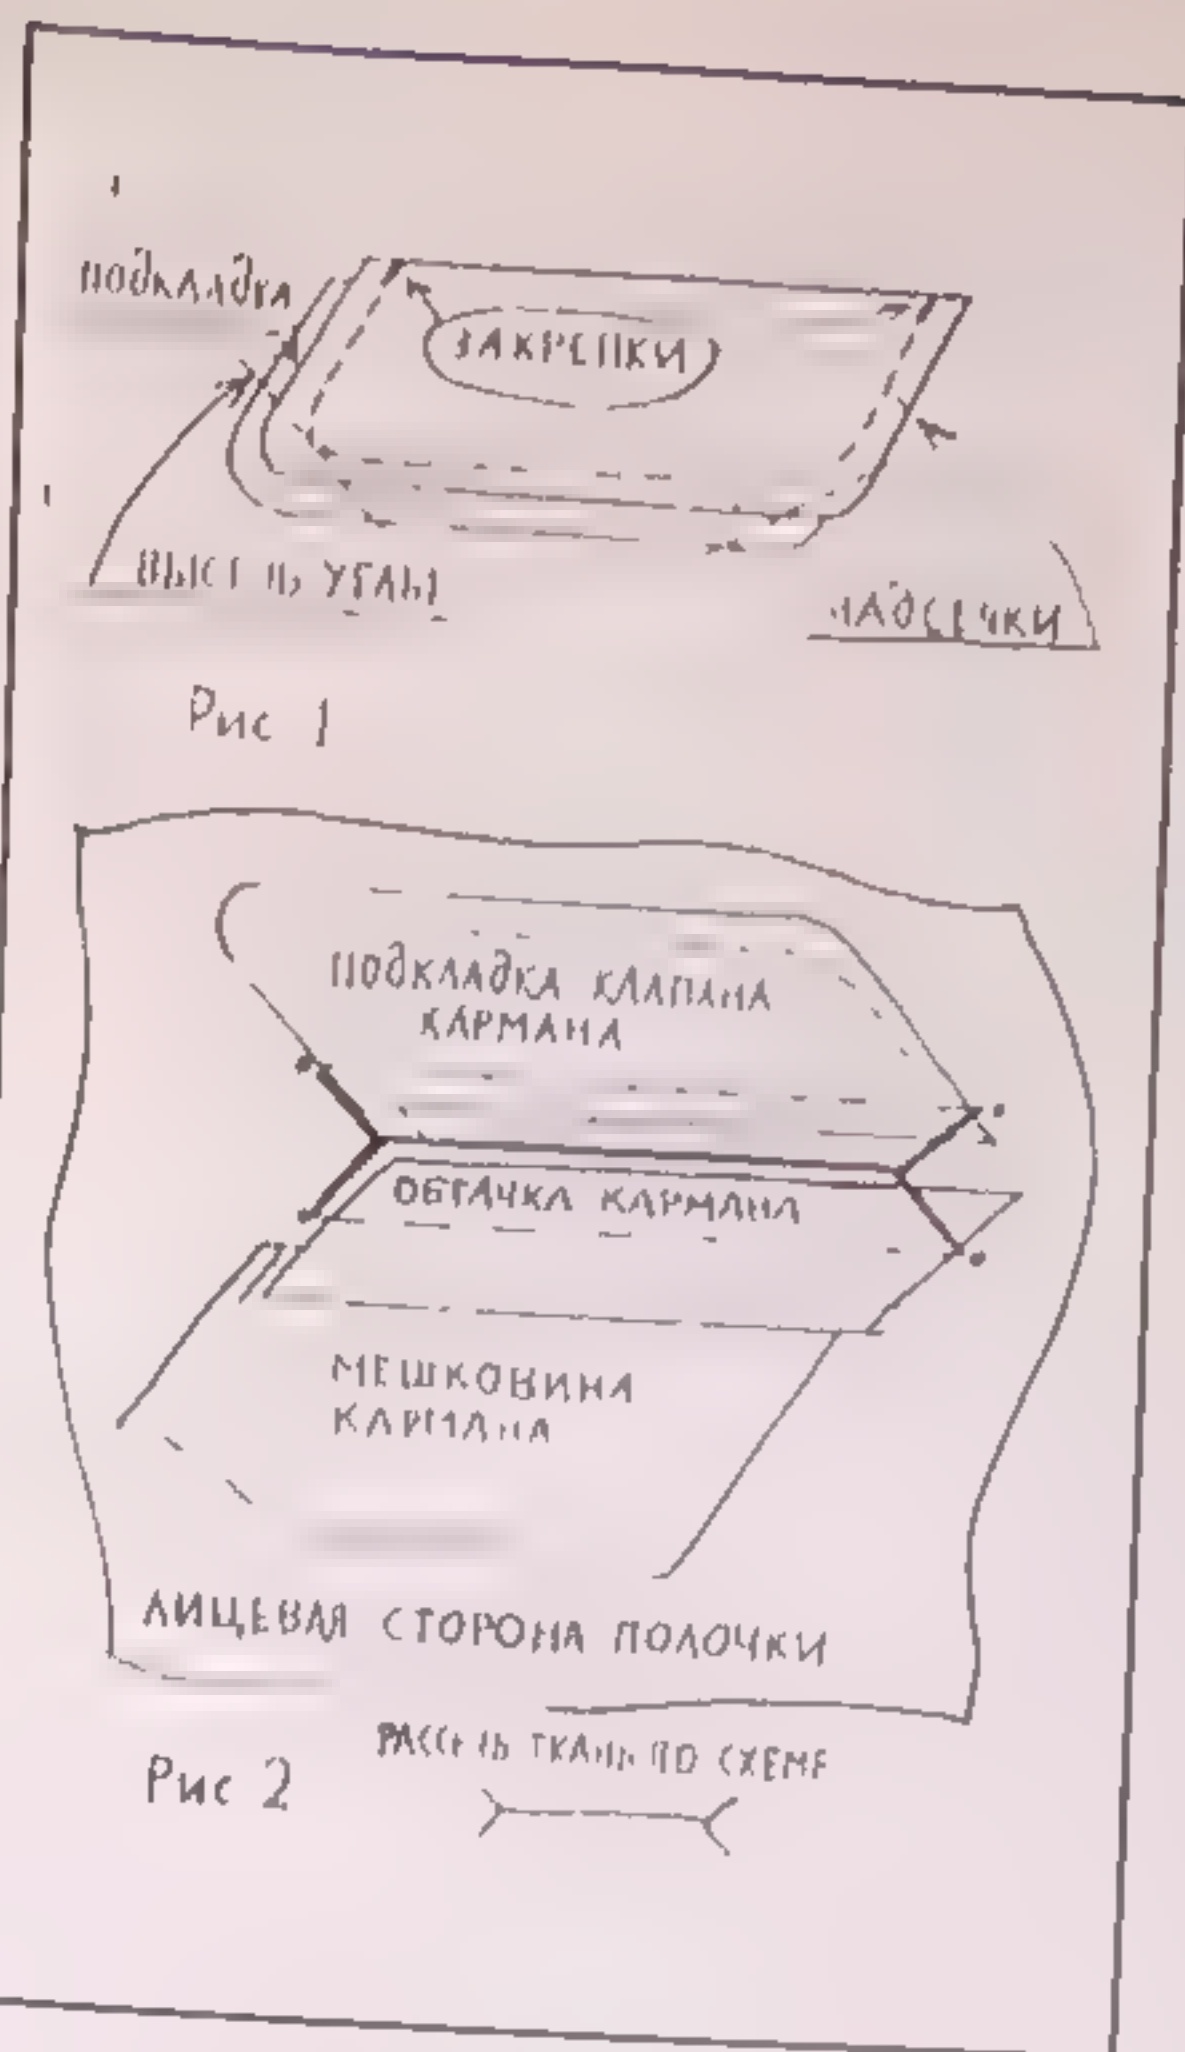 подкладка
ЗАКРЕПКИ
УГЛЫ
НАДСЕЧКИ
Рис 1
ПОДКЛАДКА КЛАПАНА
КАРМАНА
ОБТАЧКА КАРМАНА
МЕШКОВИНА
КАРМАНА
ЛИЦЕВАЯ СТОРОНА ПОЛОЧКИ
РАССЕЧЬ ТКАНЬ ПО СХЕМЕ
Рис 2